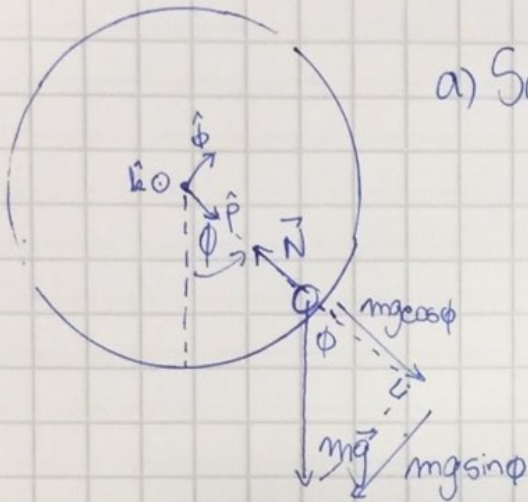 a) S
φ̂
k̂
ρ̂
ϕ
N⃗
mgcosϕ
ϕ
mg⃗
mgsinϕ